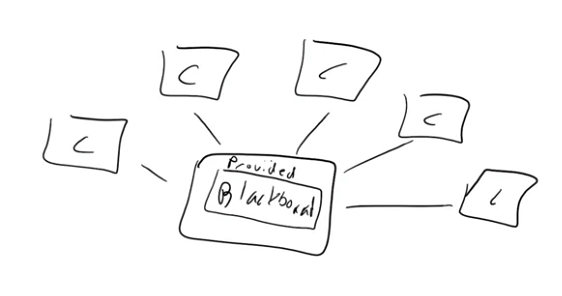 C
C
C
C
C
Provided
Blackboard